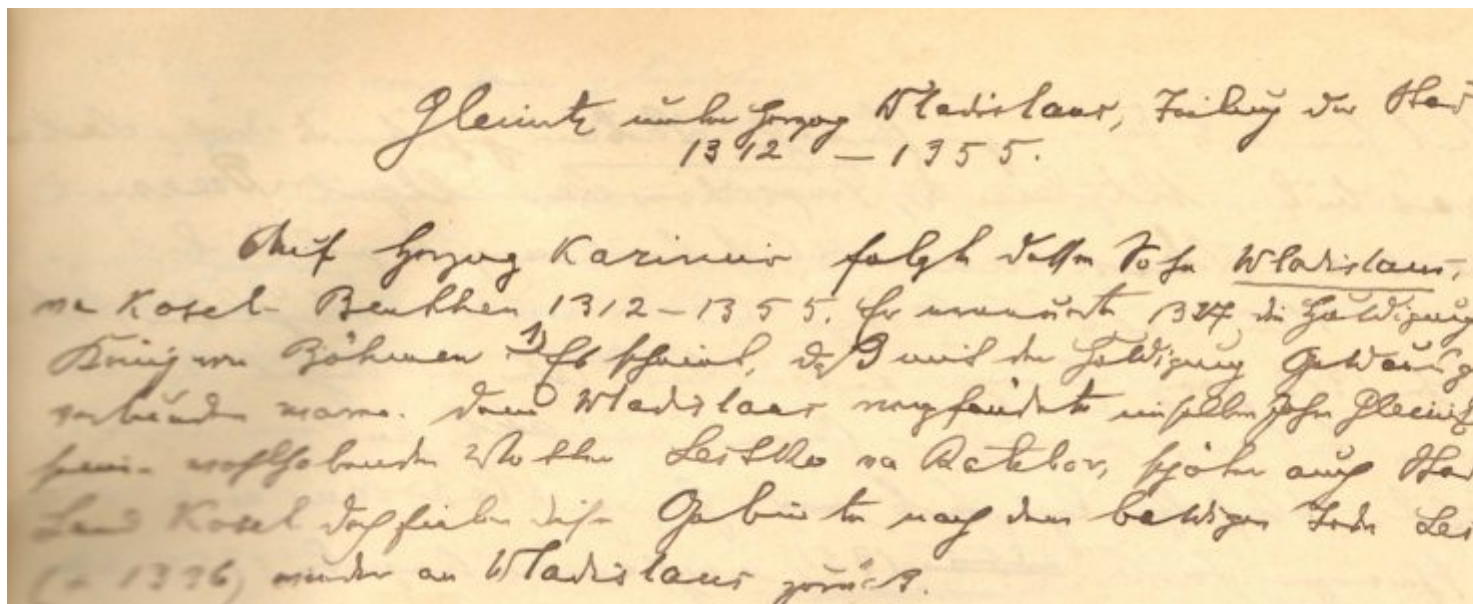 Gleiwitz unter Herzog Wladislaus, Teilung der Stad
1312 – 1355.
Auf Herzog Kazimir folgte dessen Sohn Wladislaus,
von Kosel-Beuthen 1312–1355. Er erneuerte 1327 die Huldigung
König von Böhmen 1) Es scheint, daß mit der Huldigung Geld
verbunden waren. Denn Wladislaus verpfändete im selben Jahre Gleiwitz
seinem wohlhabenden Vetter Lestko von Ratibor, später auch Stad
Land Kosel doch fielen diese Gebiete nach dem baldigen Tode Les
(+ 1336) wieder an Wladislaus zurück.